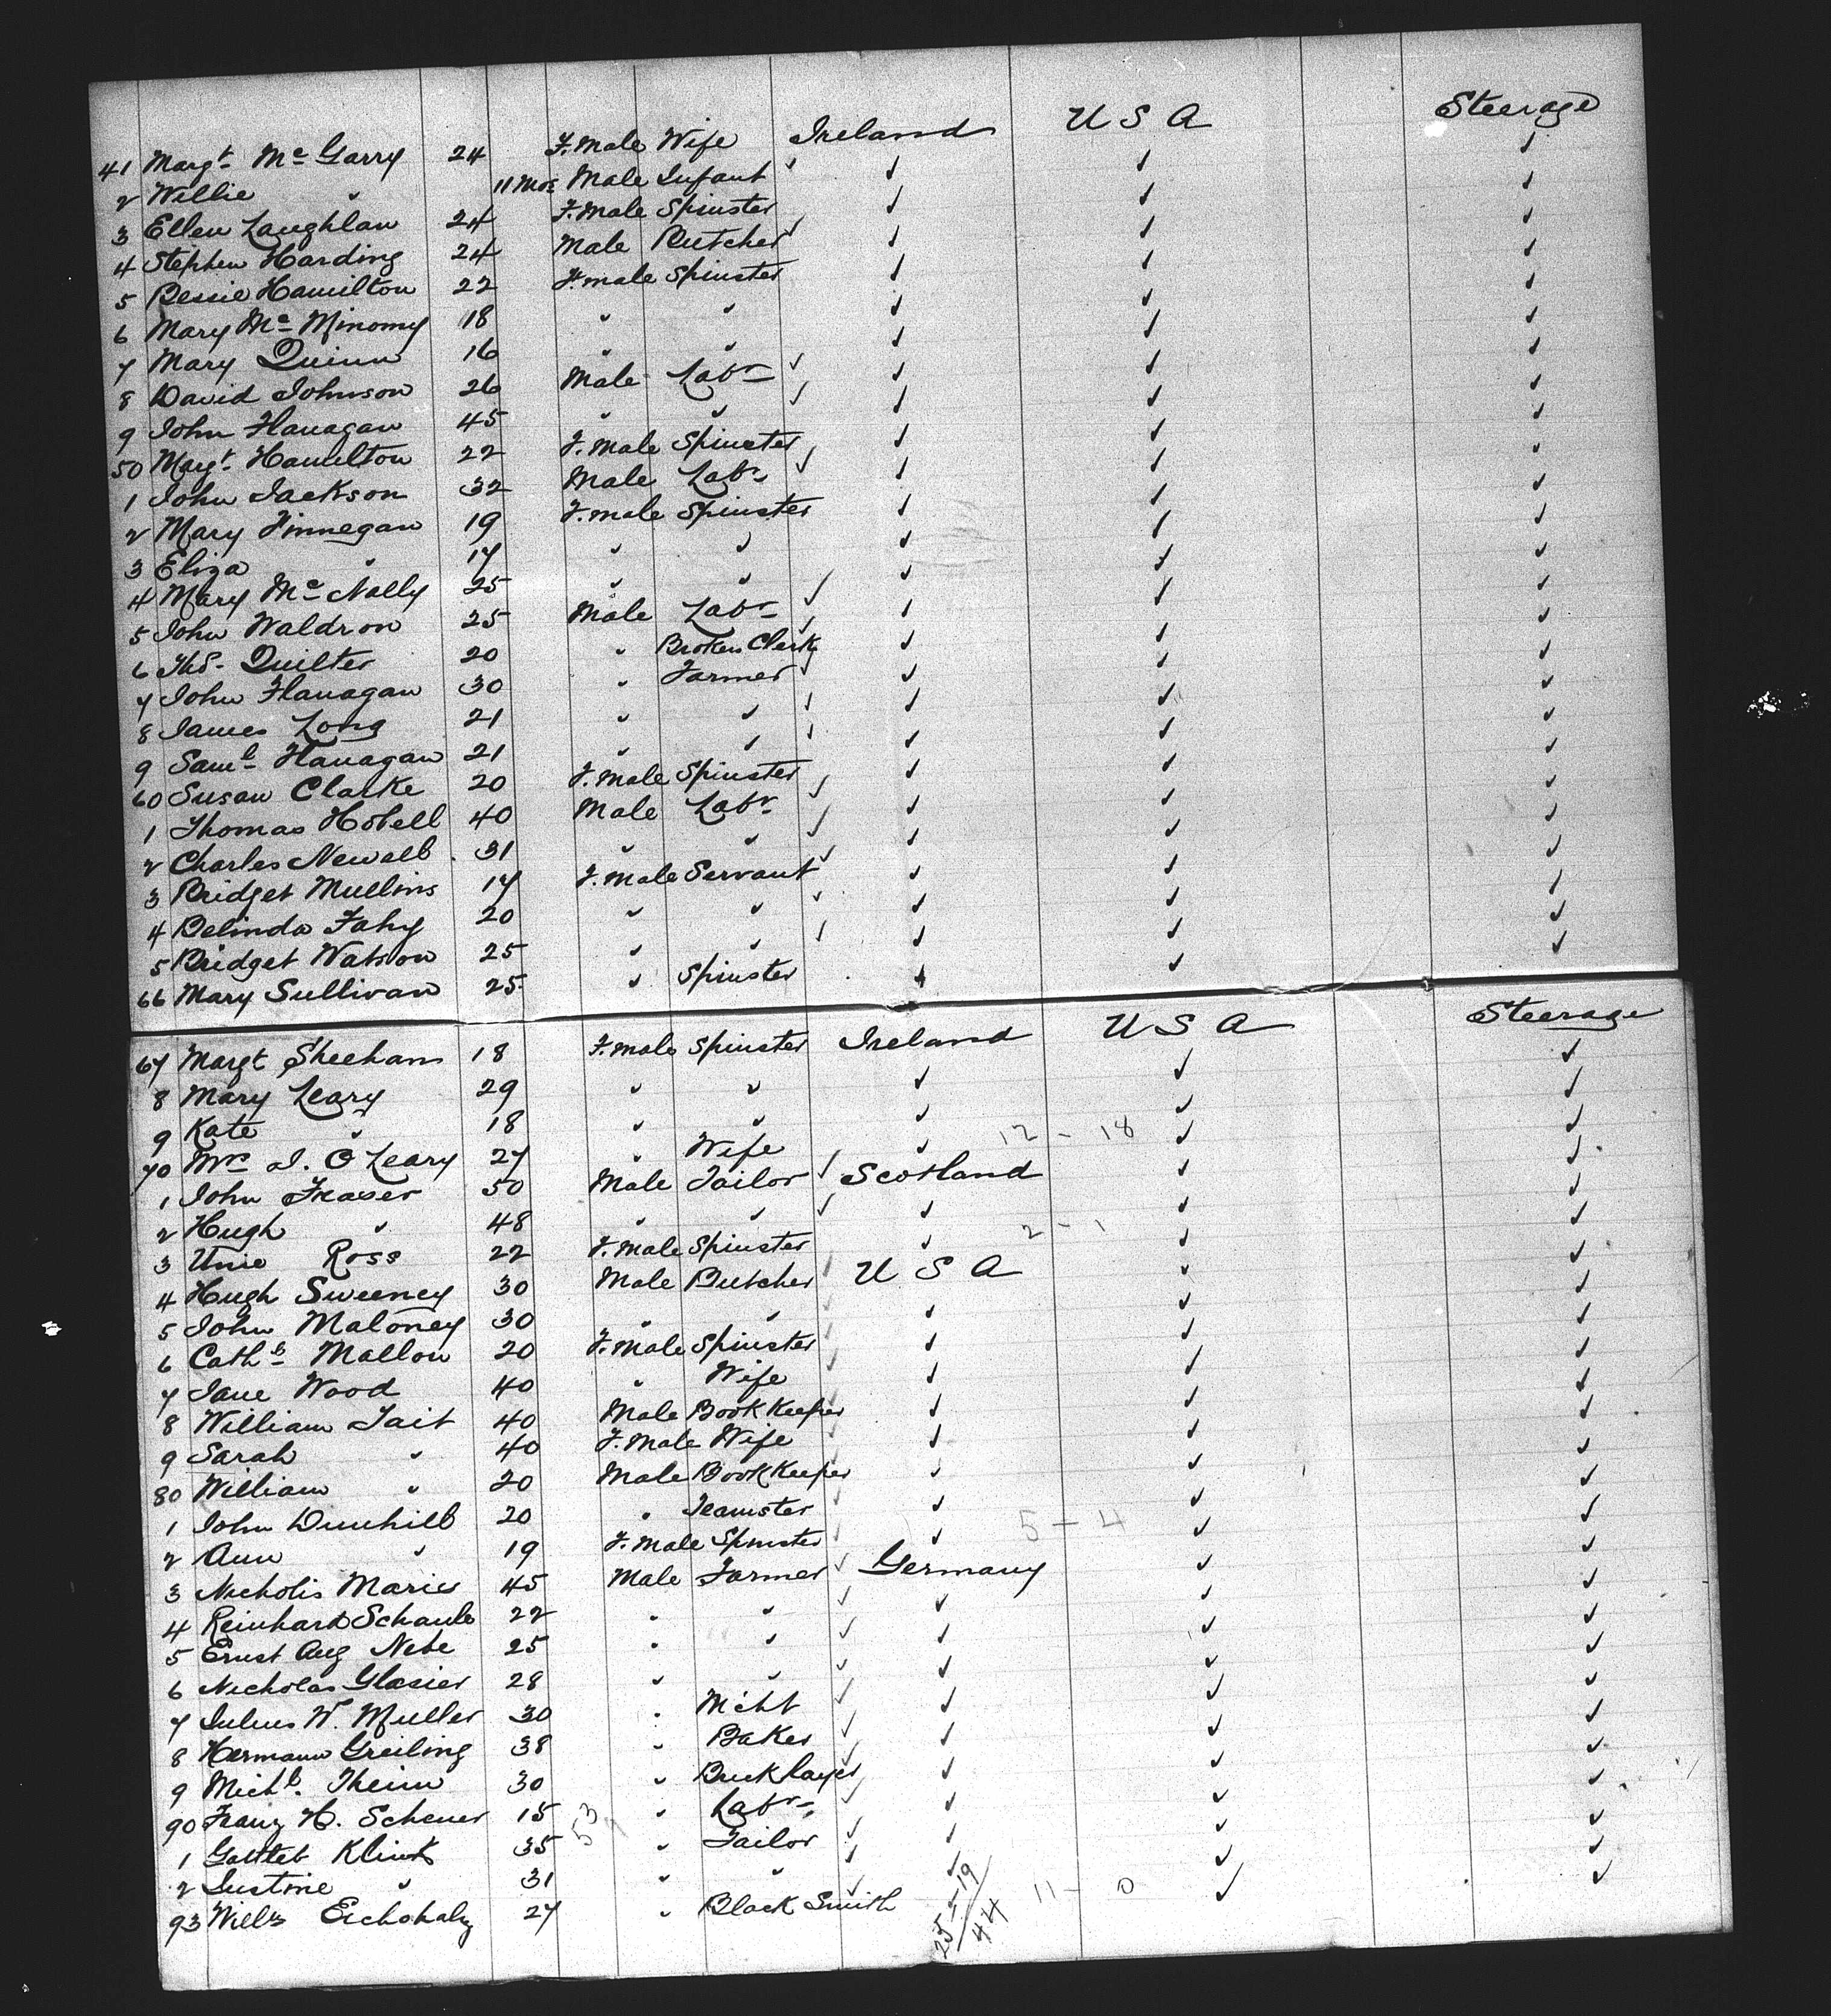 41 Margt Mc Garry 24 F.male Wife Ireland U S A Steerage
2 Willie " 11 Mos Male Infant " " "
3 Ellen Laughlan 24 F.male Spinster " " "
4 Stephen Harding 24 Male Butcher " " "
5 Bessie Hamilton 22 F.male Spinster " " "
6 Mary Mc Minomy 18 " " " " "
7 Mary Quinn 16 " " " " "
8 David Johnson 26 Male Labr " " "
9 John Flanagan 45 " " " " "
50 Margt Hamilton 22 F.male Spinster " " "
1 John Jackson 32 Male Labr " " "
2 Mary Finnegan 19 F.male Spinster " " "
3 Eliza " 17 " " " " "
4 Mary Mc Nally 25 " " " " "
5 John Waldron 25 Male Labr " " "
6 Ths. Quilter 20 " Brokers Clerk " " "
7 John Flanagan 30 " Farmer " " "
8 James Long 21 " " " " "
9 Saml Flanagan 21 " " " " "
60 Susan Clarke 20 F.male Spinster " " "
1 Thomas Hobell 40 Male Labr " " "
2 Charles Newall 31 " " " " "
3 Bridget Mullins 17 F.male Servant " " "
4 Belinda Fahy 20 " " " " "
5 Bridget Watson 25 " " " " "
66 Mary Sullivan 25 " Spinster " " "
67 Margt Sheehan 18 F.male Spinster Ireland U S A Steerage
8 Mary Leary 29 " " " " "
9 Kate " 18 " " " " "
70 Mrs J. O Leary 27 " Wife " 12 - 18 " "
1 John Fraser 50 Male Tailor Scotland " "
2 Hugh " 48 " " " " "
3 Unie Ross 22 F.male Spinster " 2 - 1 " "
4 Hugh Sweeney 30 Male Butcher U S A " "
5 John Maloney 30 " " " " "
6 Cathe Mallon 20 F.male Spinster " " "
7 Jane Wood 40 " Wife " " "
8 William Tait 40 Male Book Keeper " " "
9 Sarah " 40 F.male Wife " " "
80 William " 20 Male Book Keeper " " "
1 John Dunhill 20 " Teamster " " "
2 Ann " 19 F.male Spinster " 5 - 4 " "
3 Nicholis Maries 45 Male Farmer Germany " "
4 Reinhard Schaub 22 " " " " "
5 Ernst Aug Nebe 25 " " " " "
6 Nicholas Glasier 28 " " " " "
7 Julius W. Muller 30 " Mcht " " "
8 Hermann Greiling 38 " Baker " " "
9 Michl. Theim 30 " Bricklayer " " "
90 Franz H. Scheuer 15 53 " Labr " " "
1 Gottleb Klink 35 " Tailor " " "
2 Justine " 31 " " " " "
93 Willm Eichohaly 27 " Black Smith 25 - 19 11 - 0 "
44